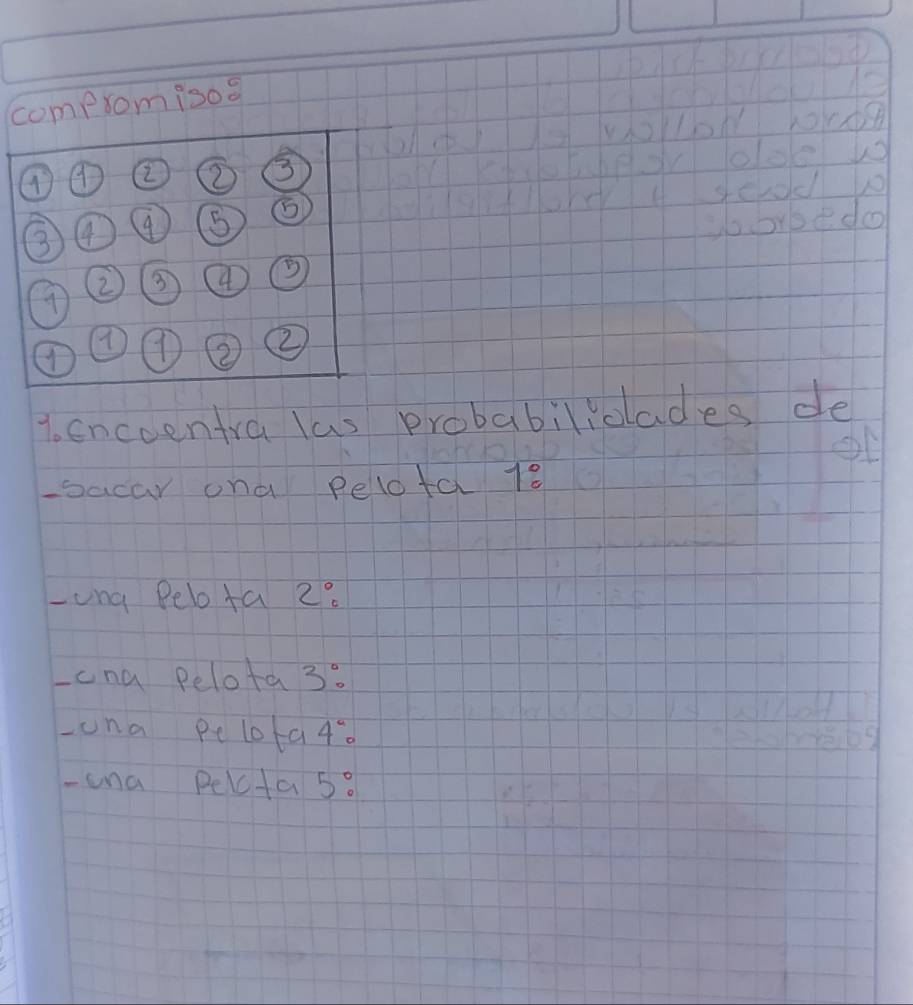 compromiso:
1 1 2 2 3
3 4 4 5 5
1 2 3 4 5
1 1 1 2 2
1. Encuentra las probabilidades de
-Sacar una pelota 1:
-una Pelota 2:
-una pelota 3:
-una pelota 4:
-una pelota 5: